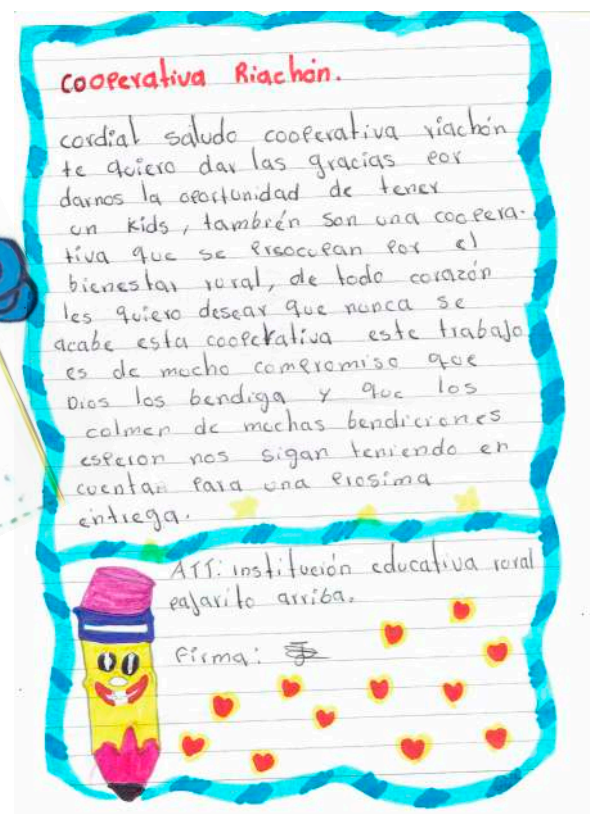 Cooperativa Riachón.
cordial saludo cooperativa riachón
te quiero dar las gracias por
darnos la oportunidad de tener
un kids, también son una coopera-
tiva que se preocupan por el
bienestar rural, de todo corazón
les quiero desear que nunca se
acabe esta cooperativa este trabajo
es de mucho compromiso que
Dios los bendiga y que los
colmen de muchas bendiciones
esperon nos sigan teniendo en
cuentan para una prosima
entrega.
ATT: institución educativa rural
pajarito arriba.
Firma: